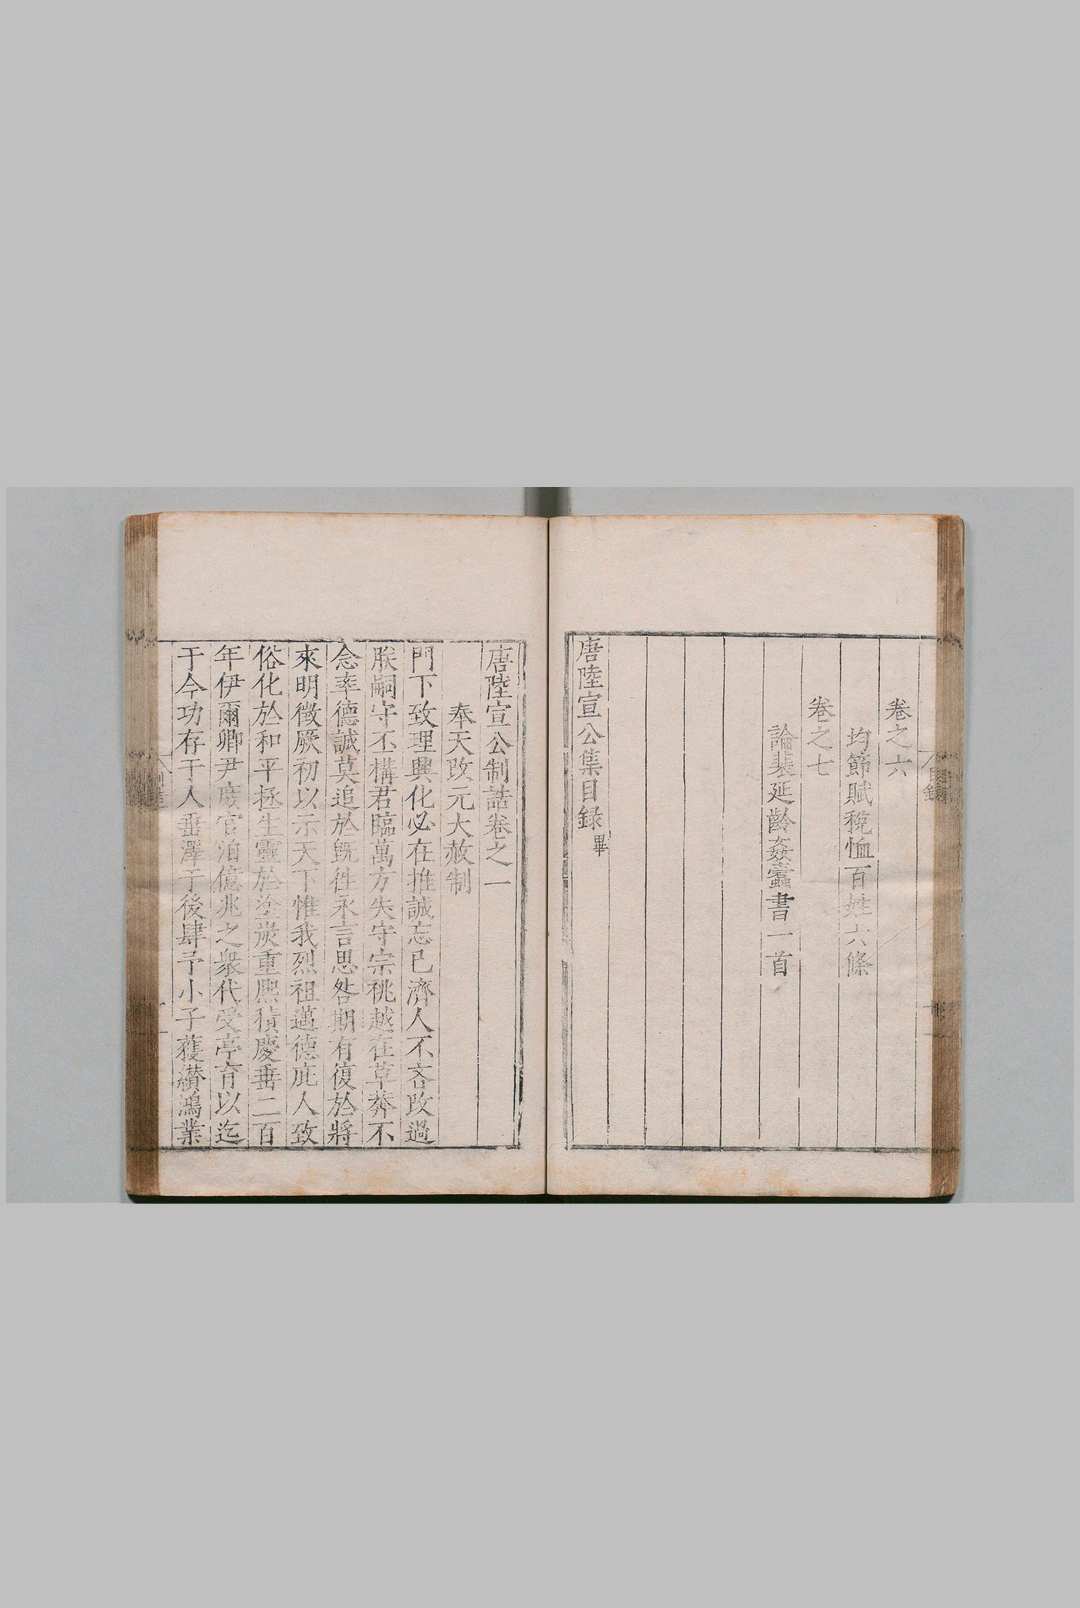 卷之六
均節賦稅恤百姓六條
卷之七
論裴延齡姦蠹書一首
唐陸宣公集目錄畢
唐陸宣公制誥卷之一
奉天改元大赦制
門下致理興化必在推誠忘已濟人不吝改過
朕嗣守丕構君臨萬方失守宗祧越在草莽不
念率德誠莫追於旣徃永言思咎期有復於將
來明徵厥初以示天下惟我烈祖邁德庇人致
俗化於和平拯生靈於塗炭重熙積慶垂二百
年伊爾卿尹庶官洎億兆之衆代受亭育以迄
于今功存于人垂澤于後肆予小子獲纘鴻業